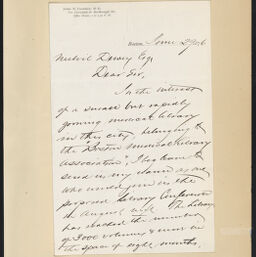 Boston, June 29. 6
Melvil Dewey Esq
Dear Sir,
In the interest
of a small but rapidly
growing medical library
in this city, belonging to
the Boston Medical Library
Association, I beg leave to
send in my name as one
who would join in the
proposed Library Conference
in August next. The Library
has reached the number
of 3000 volumes & over in
the space of eight months,